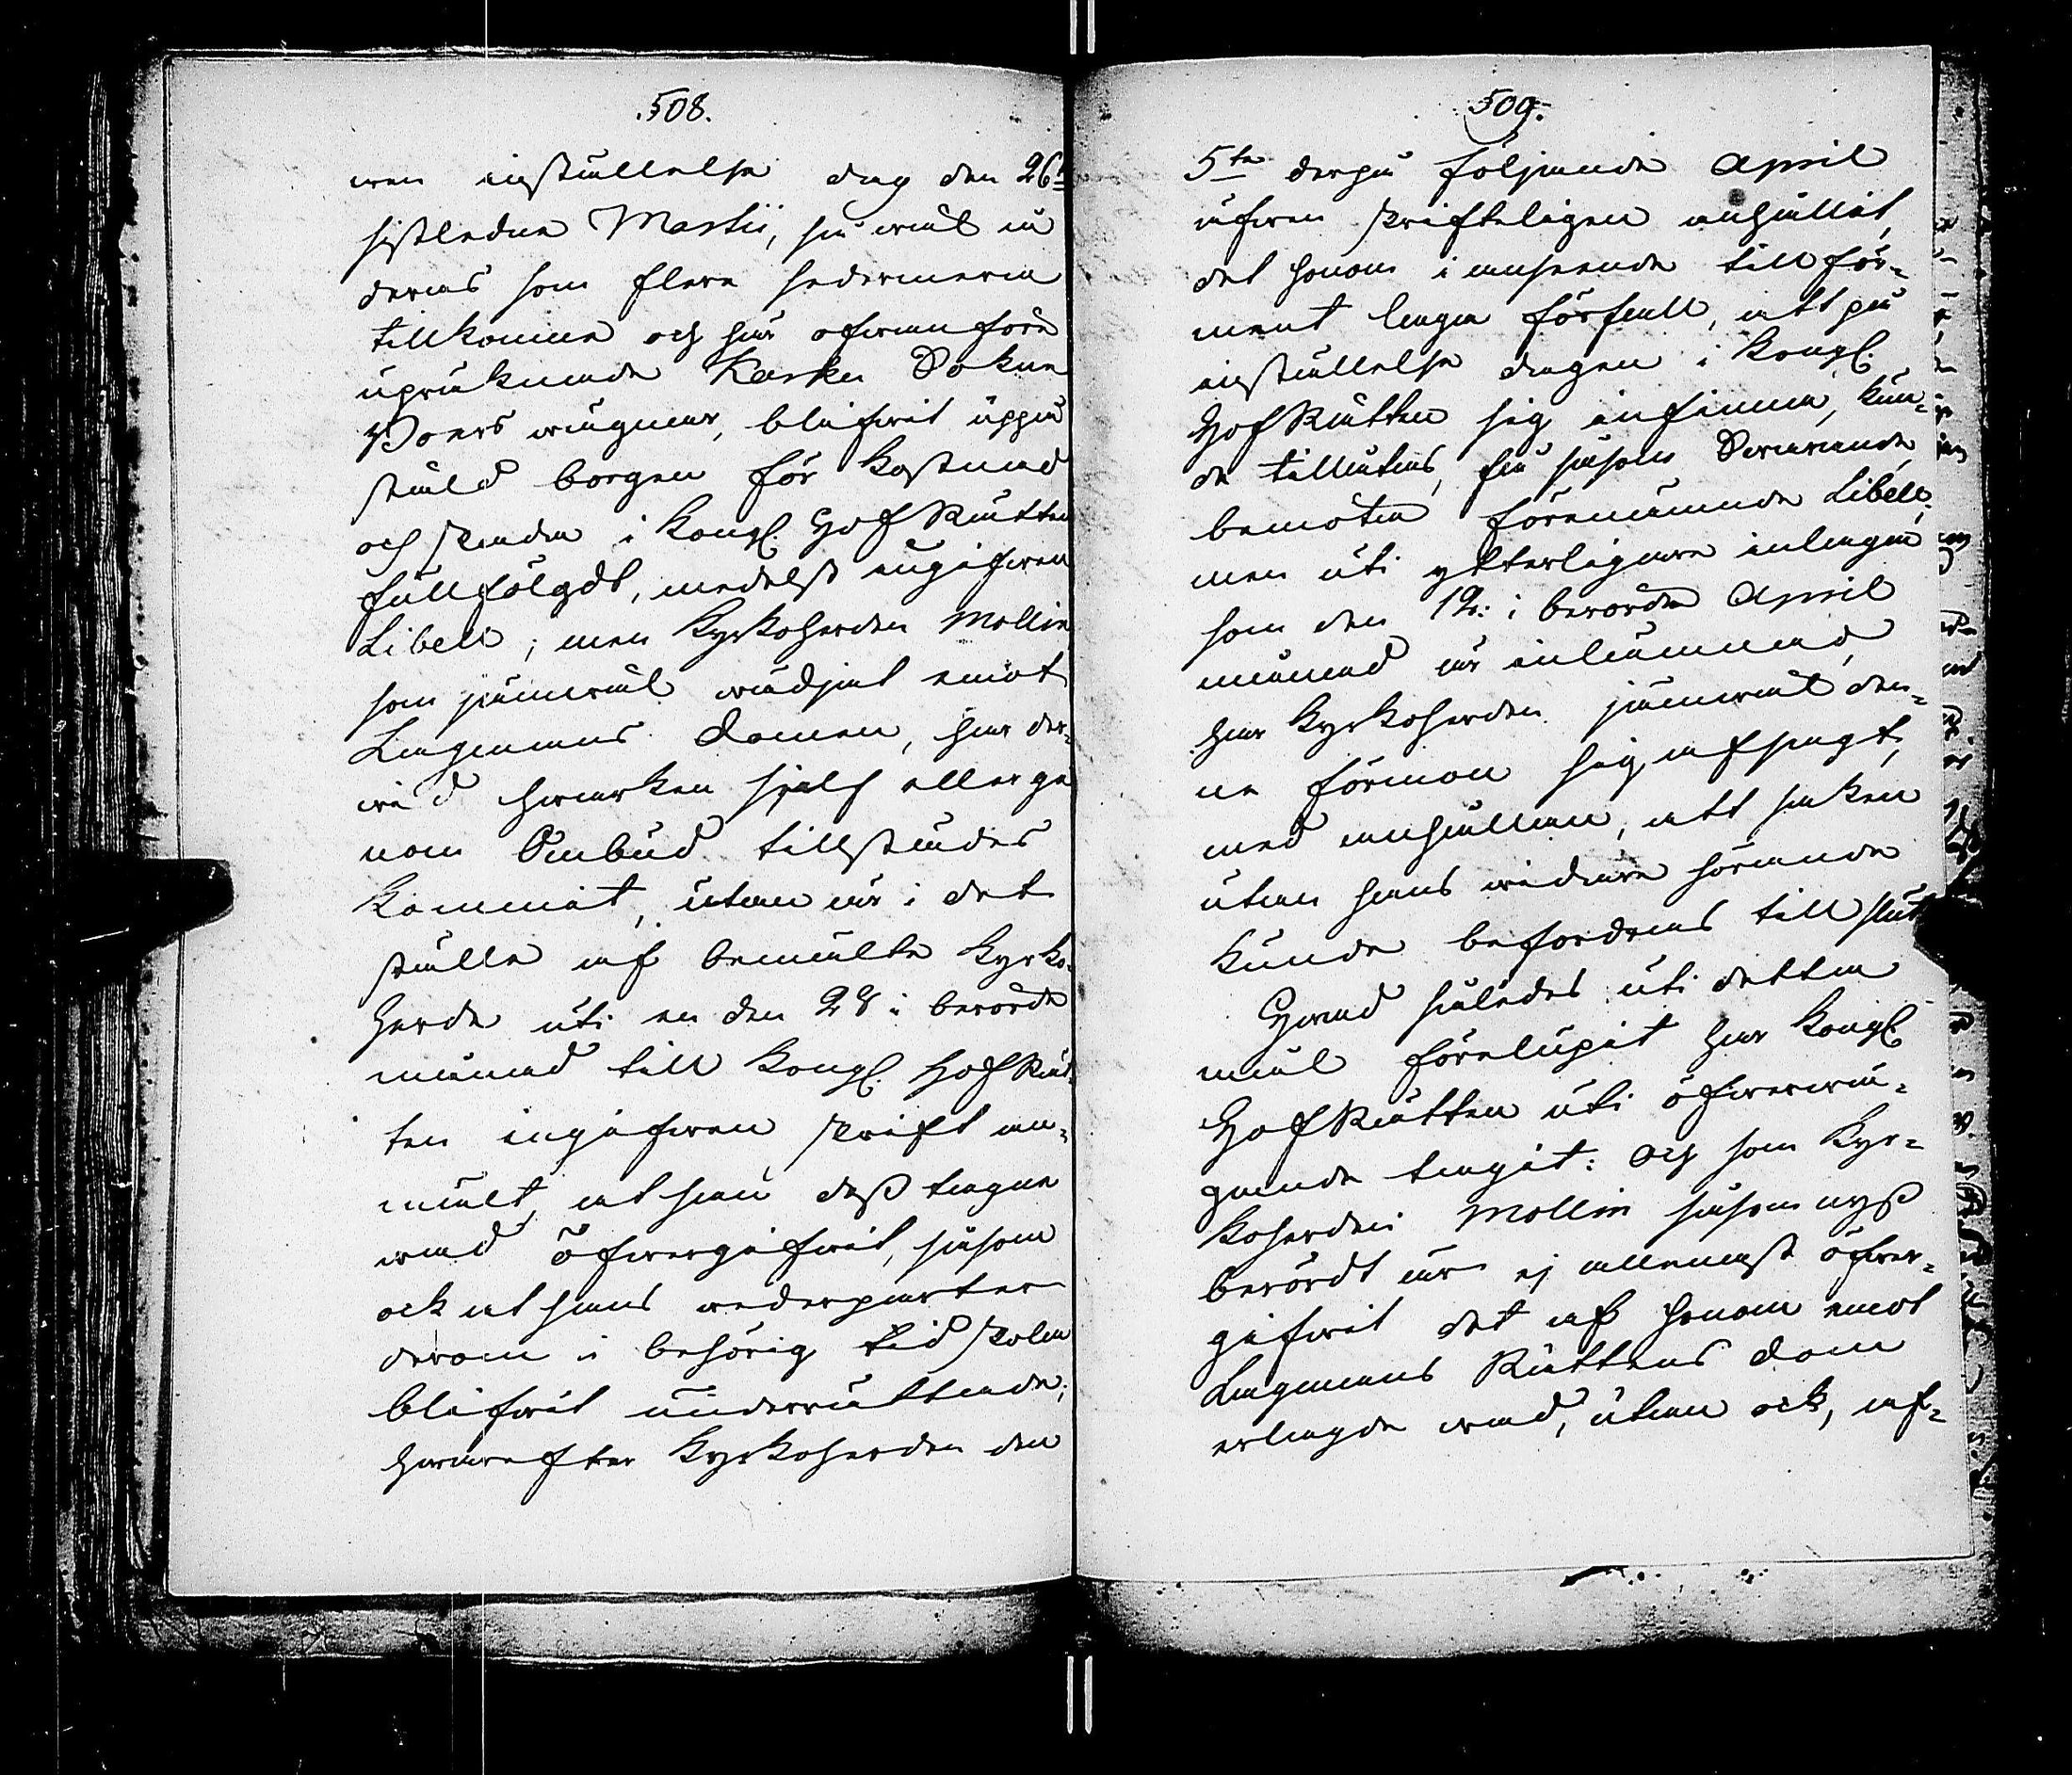 508.
wen inställelse dag den 26t
sistledne Martii, så wäl å
deras som flere sedermera
tillkomne och här ofwanföre
upräknade Karku Sokne
Boers wägnar, blifwit uppå
stäld borgen för kostnad
och skada i Kongl. HofRätten
fullfölgdt, medelst ingifwen
Libell; men Kyrkoherden Mollin
som jämwäl wädjat emot
Lagmans domen, har der¬
wid hwarken sjelf eller ge
nom Ombud tillstädes
kommit, utan är i det
ställe af bemälte Kyrko¬
herde uti en den 28 i berörde
månad till Kongl. HofRät¬
ten ingifwen skrift an¬
mält, at han dess tagne
wad öfwergifwit, såsom
ock at hans wederparter
derom i behörig tid skola
blifwit underrättade;
hwarefter Kyrkoherden den
509.
5te derpå följande April
äfwen skrifteligen anhållit,
det honom i anseende till för¬
ment laga förfall, att på
inställelse dagen i Kongl.
HofRätten sig infinna, kun¬
de tillåtas, få såsom Swarande
bemöta förenämnde Libell;
men uti ytterligare inlaga
som den 12: i berörde April
månad är inlämnad,
har Kyrkoherden jämwäl den¬
ne förmon sig afsagt,
med anhållan, att saken
utan hans widare hörande
kunde befordras till slut
Hwad således uti detta
mål förelupit har Kongl.
HofRätten uti öfwerwä¬
gande tagit: Och som Kyr¬
koherden Mollin såsom nyss
berördt är ej allenast öfwer¬
gifwit det af honom emot
Lagmans Rättens dom
erlagde wad, utan ock, af¬